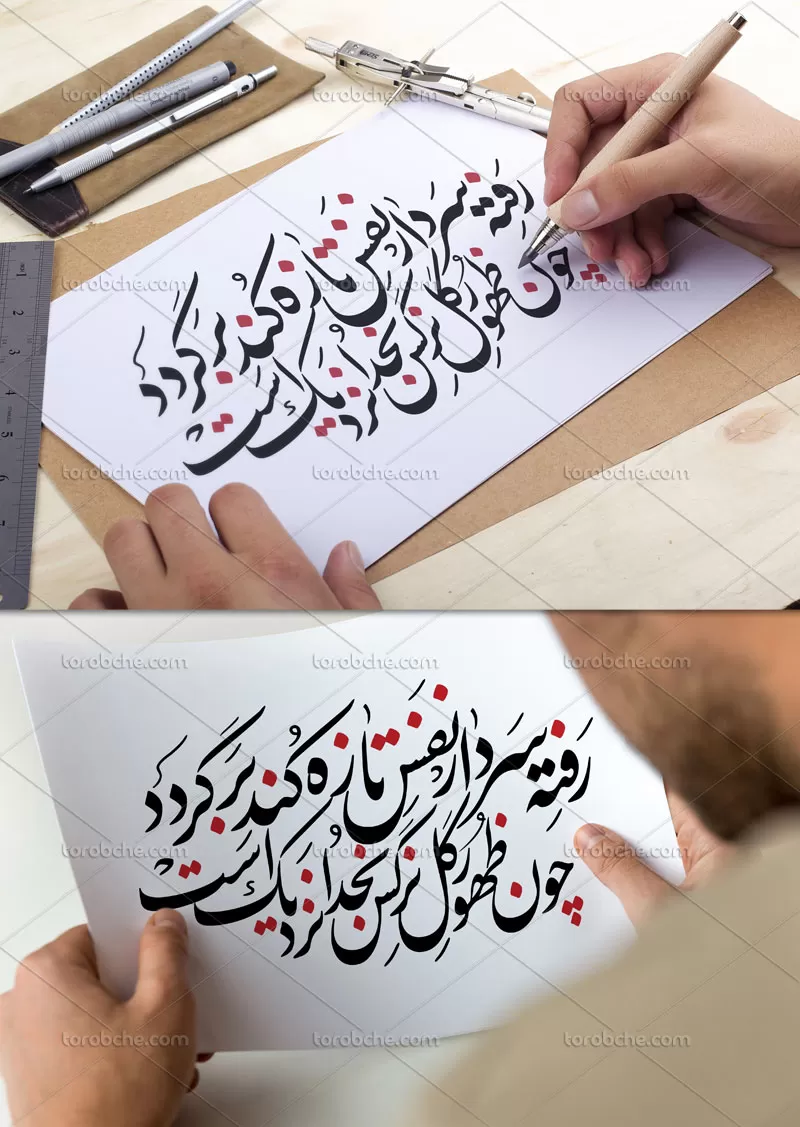 torobche.com torobche.com torobche.com
رفته سردار نفس تازه کند برگردد
چون ظهور گل نرگس بخدا نزدیک است
1
2
3
4
5
6
7
torobche.com torobche.com torobche.com
torobche.com torobche.com torobche.com
رفته سردار نفس تازه کند برگردد
چون ظهور گل نرگس بخدا نزدیک است
torobche.com torobche.com torobche.com
torobche.com torobche.com torobche.com